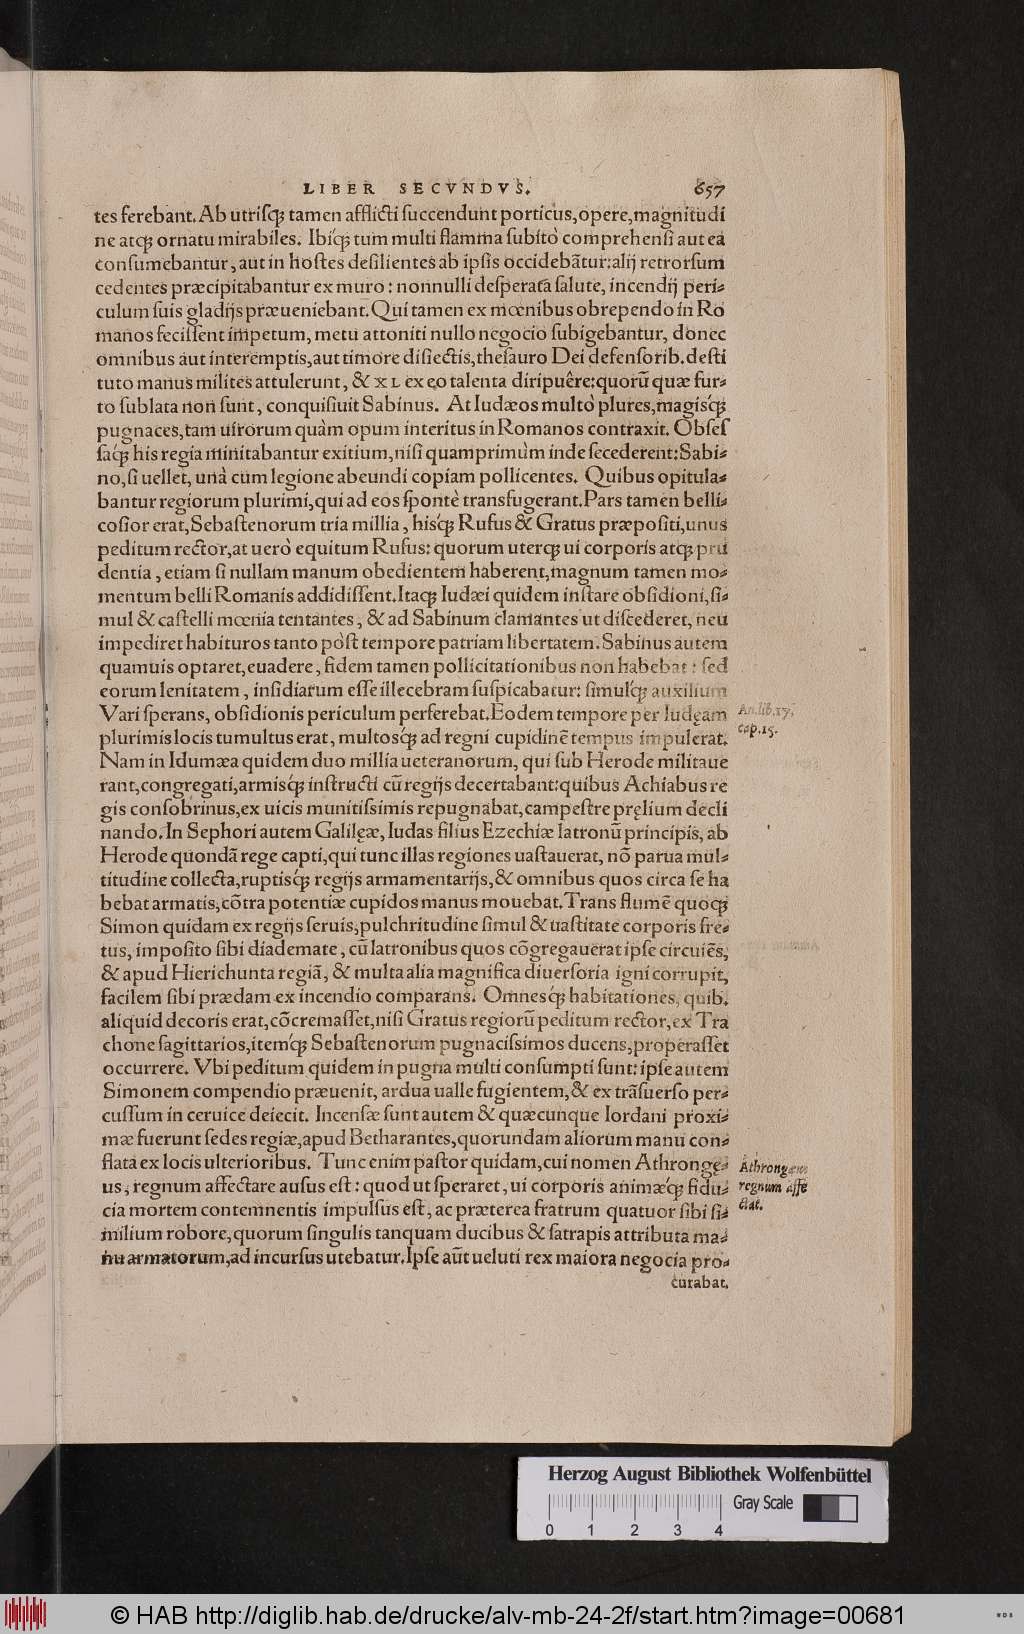 LIBER SECVNDVS. 657
tes ferebant. Ab utrisq́; tamen afflicti succendunt porticus, opere, magnitudi
ne atq; ornatu mirabiles. Ibíq; tum multi flamma subitò comprehensi aut ea
consumebantur, aut in hostes desilientes ab ipsis occidebãtur: alij retrorsum
cedentes præcipitabantur ex muro: nonnulli desperata salute, incendij peri-
culum suis gladijs præueniebant. Qui tamen ex mœnibus obrependo in Ro
manos fecissent impetum, metu attoniti nullo negocio subigebantur, donec
omnibus aut interemptis, aut timore disiectis, thesauro Dei defensorib. desti
tuto manus milites attulerunt, & XL ex eo talenta diripuêre: quorũ quæ fur-
to sublata non sunt, conquisiuit Sabinus. At Iudæos multò plures, magisq́;
pugnaces, tam uirorum quàm opum interitus in Romanos contraxit. Obses
saq́; his regia minitabantur exitium, nisi quamprimùm inde secederent: Sabi-
no, si uellet, unà cum legione abeundi copiam pollicentes. Quibus opitula-
bantur regiorum plurimi, qui ad eos spontè transfugerant. Pars tamen belli-
cosior erat, Sebastenorum tria millia, hisq́; Rufus & Gratus præpositi, unus
peditum rector, at uerò equitum Rufus: quorum uterq; ui corporis atq; pru
dentia, etiam si nullam manum obedientem haberent, magnum tamen mo-
mentum belli Romanis addidissent. Itaq; Iudæi quidem instare obsidioni, si-
mul & castelli mœnia tentantes, & ad Sabinum clamantes ut discederet, neu
impediret habituros tanto pòst tempore patriam libertatem. Sabinus autem
quamuis optaret, euadere, fidem tamen pollicitationibus non habebat: sed
eorum lenitatem, insidiarum esse illecebram suspicabatur: simulq́; auxilium
Vari sperans, obsidionis periculum perferebat. Eodem tempore per Iudęam
An. lib. 17.
cap. 15.
plurimis locis tumultus erat, multosq́; ad regni cupidinẽ tempus impulerat.
Nam in Idumæa quidem duo millia ueteranorum, qui sub Herode militaue
rant, congregati, armisq́; instructi cũ regijs decertabant: quibus Achiabus re
gis consobrinus, ex uicis munitissimis repugnabat, campestre pręlium decli
nando. In Sephori autem Galilęæ, Iudas filius Ezechiæ latronũ principis, ab
Herode quondã rege capti, qui tunc illas regiones uastauerat, nõ parua mul-
titudine collecta, ruptisq́; regijs armamentarijs, & omnibus quos circa se ha
bebat armatis, cõtra potentiæ cupidos manus mouebat. Trans flumẽ quoq́;
Simon quidam ex regijs seruis, pulchritudine simul & uastitate corporis fre-
tus, imposito sibi diademate, cũ latronibus quos cõgregauerat ipse circuiẽs,
& apud Hierichunta regiã, & multa alia magnifica diuersoria igni corrupit,
facilem sibi prædam ex incendio comparans. Omnesq́; habitationes, quib.
aliquid decoris erat, cõcremasset, nisi Gratus regiorũ peditum rector, ex Tra
chone sagittarios, itemq́; Sebastenorum pugnacissimos ducens, properasset
occurrere. Vbi peditum quidem in pugna multi consumpti sunt: ipse autem
Simonem compendio præuenit, ardua ualle fugientem, & ex trãsuerso per-
cussum in ceruice deiecit. Incensæ sunt autem & quæcunque Iordani proxi-
mæ fuerunt sedes regiæ, apud Betharantes, quorundam aliorum manu con-
flata ex locis ulterioribus. Tunc enim pastor quidam, cui nomen Athrongę-
us, regnum affectare ausus est: quod ut speraret, ui corporis animæq́; fidu-
Athrongæus
regnum affe
ctat.
cia mortem contemnentis impulsus est, ac præterea fratrum quatuor sibi si-
milium robore, quorum singulis tanquam ducibus & satrapis attributa ma-
nu armatorum, ad incursus utebatur. Ipse aũt ueluti rex maiora negocia pro-
curabat.
Herzog August Bibliothek Wolfenbüttel
Gray Scale
0 1 2 3 4
© HAB http://diglib.hab.de/drucke/alv-mb-24-2f/start.htm?image=00681